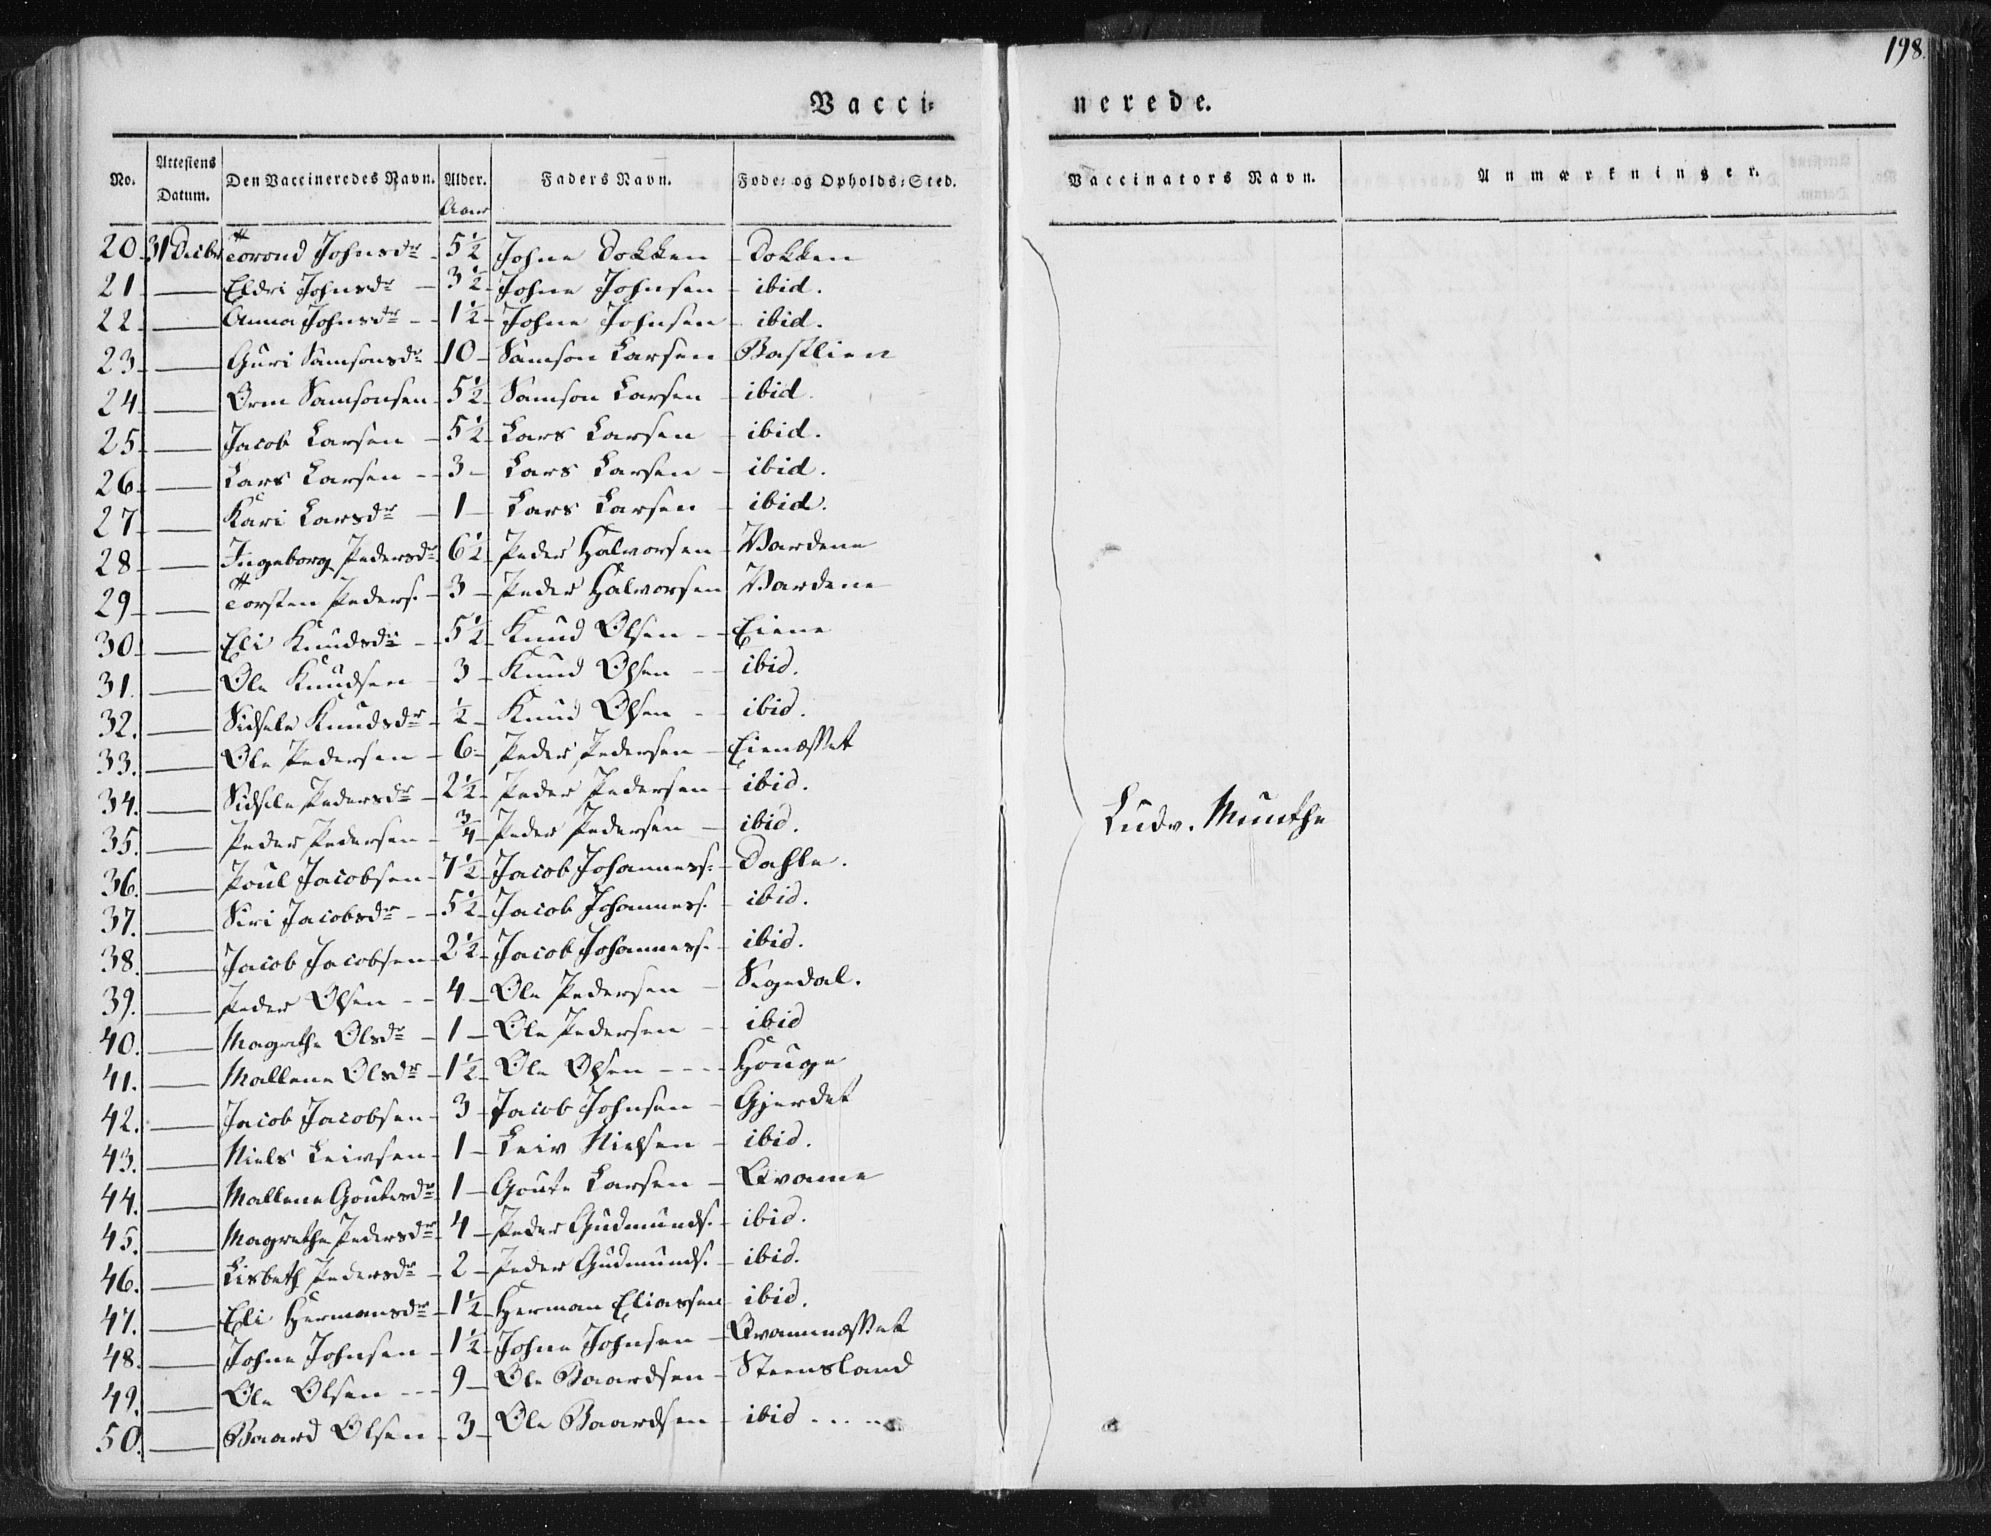 198.
Vacci⸗ nerede.
No. Attestens Datum. Den Vaccineredes Navn. Alder. Faders Navn. Føde⸗ og Opholds⸗Sted. Vaccinators Navn. Anmærkninger.
Aar
20. 31 Decbr Torond Johnsdr 5½ Johne Dokken Dokken
21 — Eldri Johnsdr 3½ Johne Johnsen ibid.
22 — Anna Johnsdr 1½ Johne Johnsen ibid.
23 — Guri Samsonsdr 10 Samson Larsen Bastlien
24 — Orm Samsonsen 5½ Samson Larsen ibid.
25 — Jacob Larsen 5½ Lars Larsen ibid.
26 — Lars Larsen 3 Lars Larsen ibid.
27 — Kari Larsdr 1 Lars Larsen ibid.
28 — Ingeborg Pedersdr 6½ Peder Halvorsen Wardene
29 — Torsten Peders. 3 Peder Halvorsen Wardene
30 — Eli Knudsdr 5½ Knud Olsen Eiene
31. — Ole Knudsen 3 Knud Olsen ibid.
32. — Sidsele Knudsdr ½ Knud Olsen ibid.
33. — Ole Pedersen 6 Peder Pedersen Eienæsset
34. — Sidsele Pedersdr 2½ Peder Pedersen ibid.
35. — Peder Pedersen ¾ Peder Pedersen ibid.
Ludv. Munthe
36. — Poul Jacobsen 7½ Jacob Johanness. Dahle.
37. — Siri Jacobsdr 5½ Jacob Johanness. ibid.
38. — Jacob Jacobsen 2½ Jacob Johanness. ibid.
39. — Peder Olsen 4 Ole Pedersen Segedal.
40. — Magrethe Olsdr 1 Ole Pedersen ibid
41. — Mallene Olsdr 1½ Ole Olsen Houge
42. — Jacob Jacobsen 3 Jacob Johnsen Gjerdet
43. — Niels Leivsen 1 Leiv Nielsen ibid.
44. — Mallene Goutesdr 1 Goute Larsen Qvame
45. — Magrethe Pedersdr 4 Peder Gudmunds. ibid.
46. — Lisbeth Pedersdr 2 Peder Gudmunds. ibid.
47. — Eli Hermansdr 1½ Herman Eliassen ibid.
48. — Johne Johnsen 1½ Johne Johnsen Qvamnæsset
49. — Ole Olsen 9 Ole Baardsen Steensland
50. — Baard Olsen 3 Ole Baardsen ibid